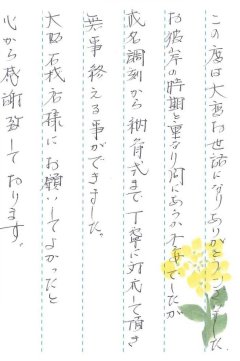 この度は大変お世話になりありがとうございました。
お彼岸の時期と重なり間にあうか大変でしたが
戒名調刻から納骨式まで丁寧に対応して頂き
無事終える事ができました。
大野石材店様にお願いしてよかったと
心から感謝致しております。